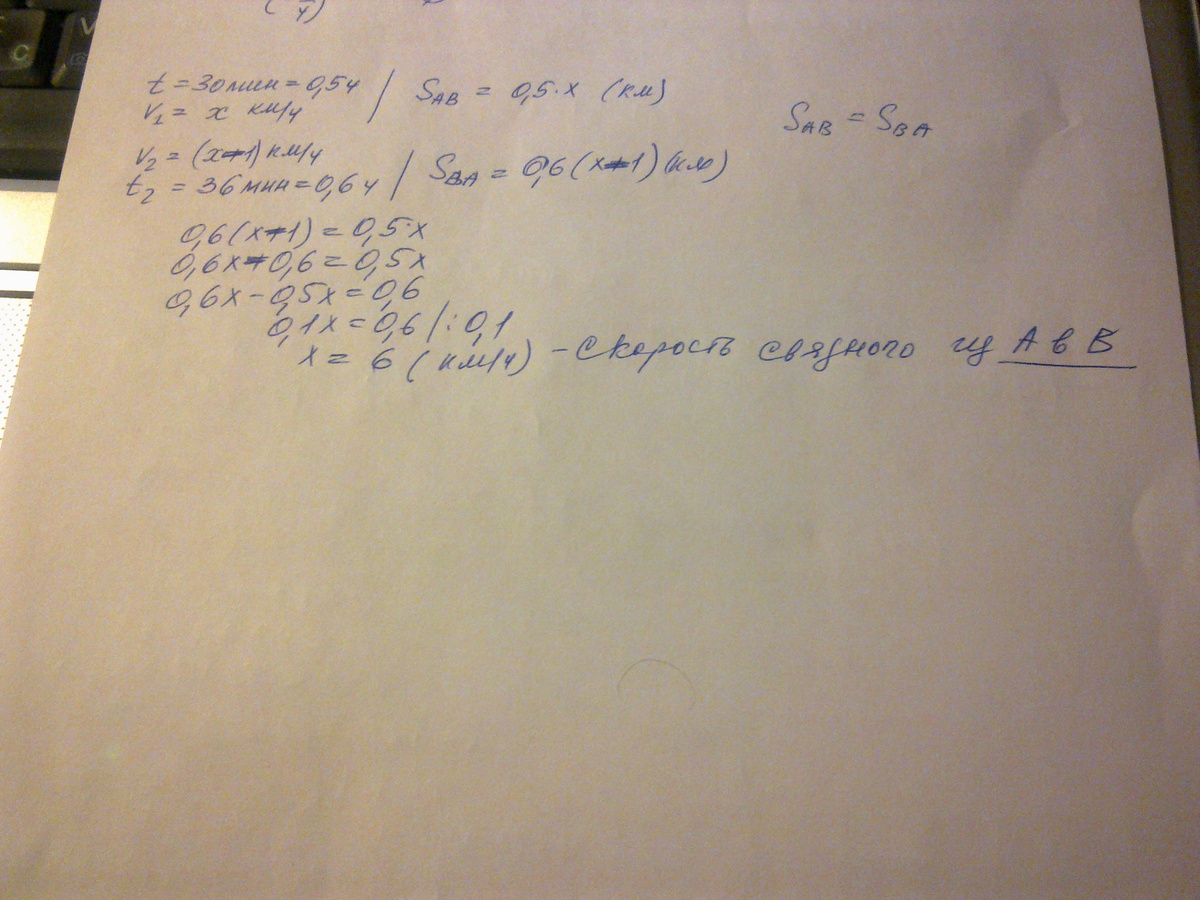 t = 30 мин = 0,5 ч | S_AB = 0,5·x (км)
V₁ = x км/ч
S_AB = S_BA
V₂ = (x-1) км/ч
t₂ = 36 мин = 0,6 ч | S_BA = 0,6(x-1) (км)
0,6(x-1) = 0,5·x
0,6x-0,6 = 0,5x
0,6x - 0,5x = 0,6
0,1x = 0,6 |:0,1
x = 6 (км/ч) - скорость связного из А в В